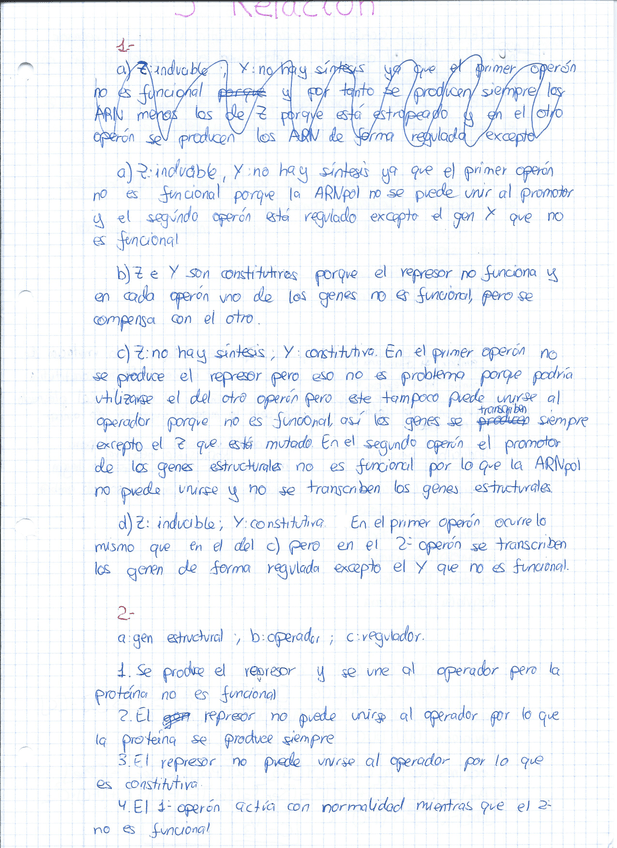 5 Relación
1-
a) Z: inducible, Y: no hay síntesis ya que el primer operón
no es funcional porque y por tanto se producen siempre los
ARN menos los de Z porque está estropeado y en el otro
operón se producen los ARN de forma regulada excepto
a) Z: inducible, Y: no hay síntesis ya que el primer operón
no es funcional porque la ARNpol no se puede unir al promotor
y el segundo operón está regulado excepto el gen Y que no
es funcional
b) Z e Y son constitutivos porque el represor no funciona y
en cada operón uno de los genes no es funcional, pero se
compensa con el otro.
c) Z: no hay síntesis; Y: constitutivo. En el primer operón no
se produce el represor pero eso no es problema porque podría
utilizarse el del otro operón pero este tampoco puede unirse al
operador porque no es funcional, así los genes se transcriben siempre
excepto el Z que está mutado. En el segundo operón el promotor
de los genes estructurales no es funcional por lo que la ARNpol
no puede unirse y no se transcriben los genes estructurales
d) Z: inducible; Y: constitutiva En el primer operón ocurre lo
mismo que en el del c) pero en el 2º operón se transcriben
los genen de forma regulada excepto el Y que no es funcional.
2-
a: gen estructural; b: operador; c: regulador.
1. Se produce el represor y se une al operador pero la
protéina no es funcional
2. El gen represor no puede unirse al operador por lo que
la proteína se produce siempre
3. El represor no puede unirse al operador por lo que
es constitutiva.
4. El 1º operón actúa con normalidad mientras que el 2º
no es funcional